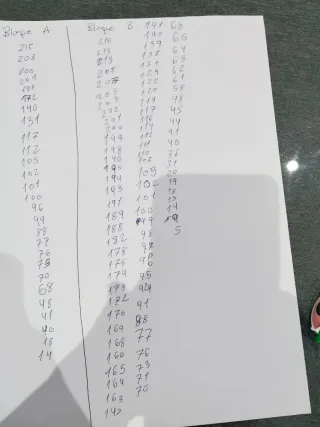 Bloque A
215
203
200
201
191
172
140
131
117
112
105
102
101
100
46
44
88
77
76
73
70
68
48
41
40
18
14
Bloque B
216
213
207
205
203
202
201
200
199
198
196
195
194
193
191
189
188
182
178
175
174
173
172
170
169
168
166
165
164
163
142
141
140
139
131
124
122
120
119
117
116
114
112
111
110
107
105
102
101
100
99
98
96
95
94
91
88
77
76
73
71
70
68
66
64
63
62
61
58
48
45
44
41
40
21
20
19
18
15
14
5